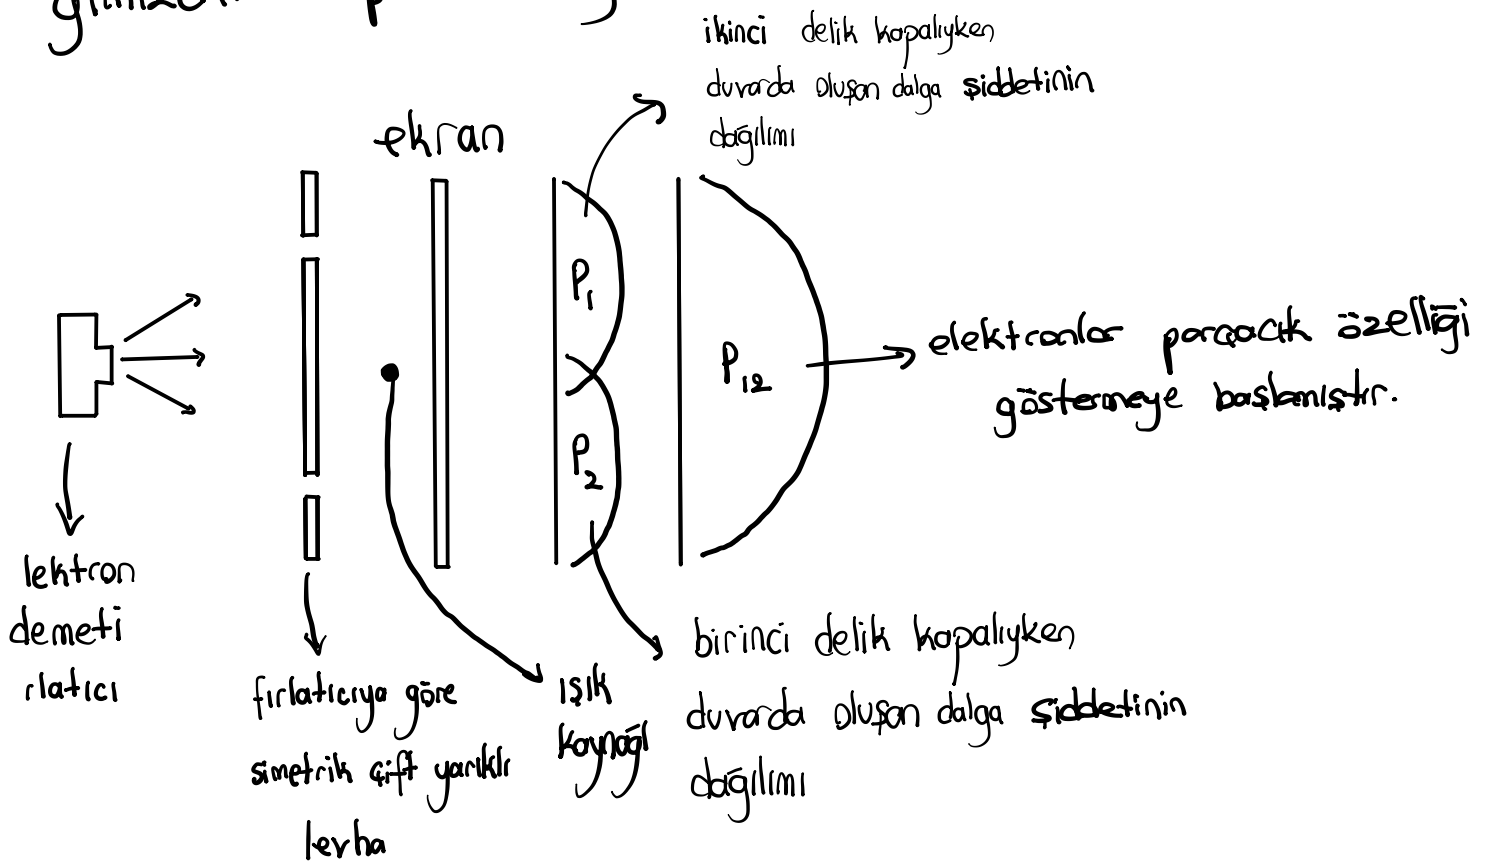 ikinci delik kapalıyken
duvarda oluşan dalga şiddetinin
dağılımı
ekran
P₁
P₂
P₁₂
elektronlar parçacık özelliği
göstermeye başlamıştır.
lektron
demeti
rlatıcı
fırlatıcıya göre
simetrik çift yarıklı
levha
ışık
kaynağı
birinci delik kapalıyken
duvarda oluşan dalga şiddetinin
dağılımı